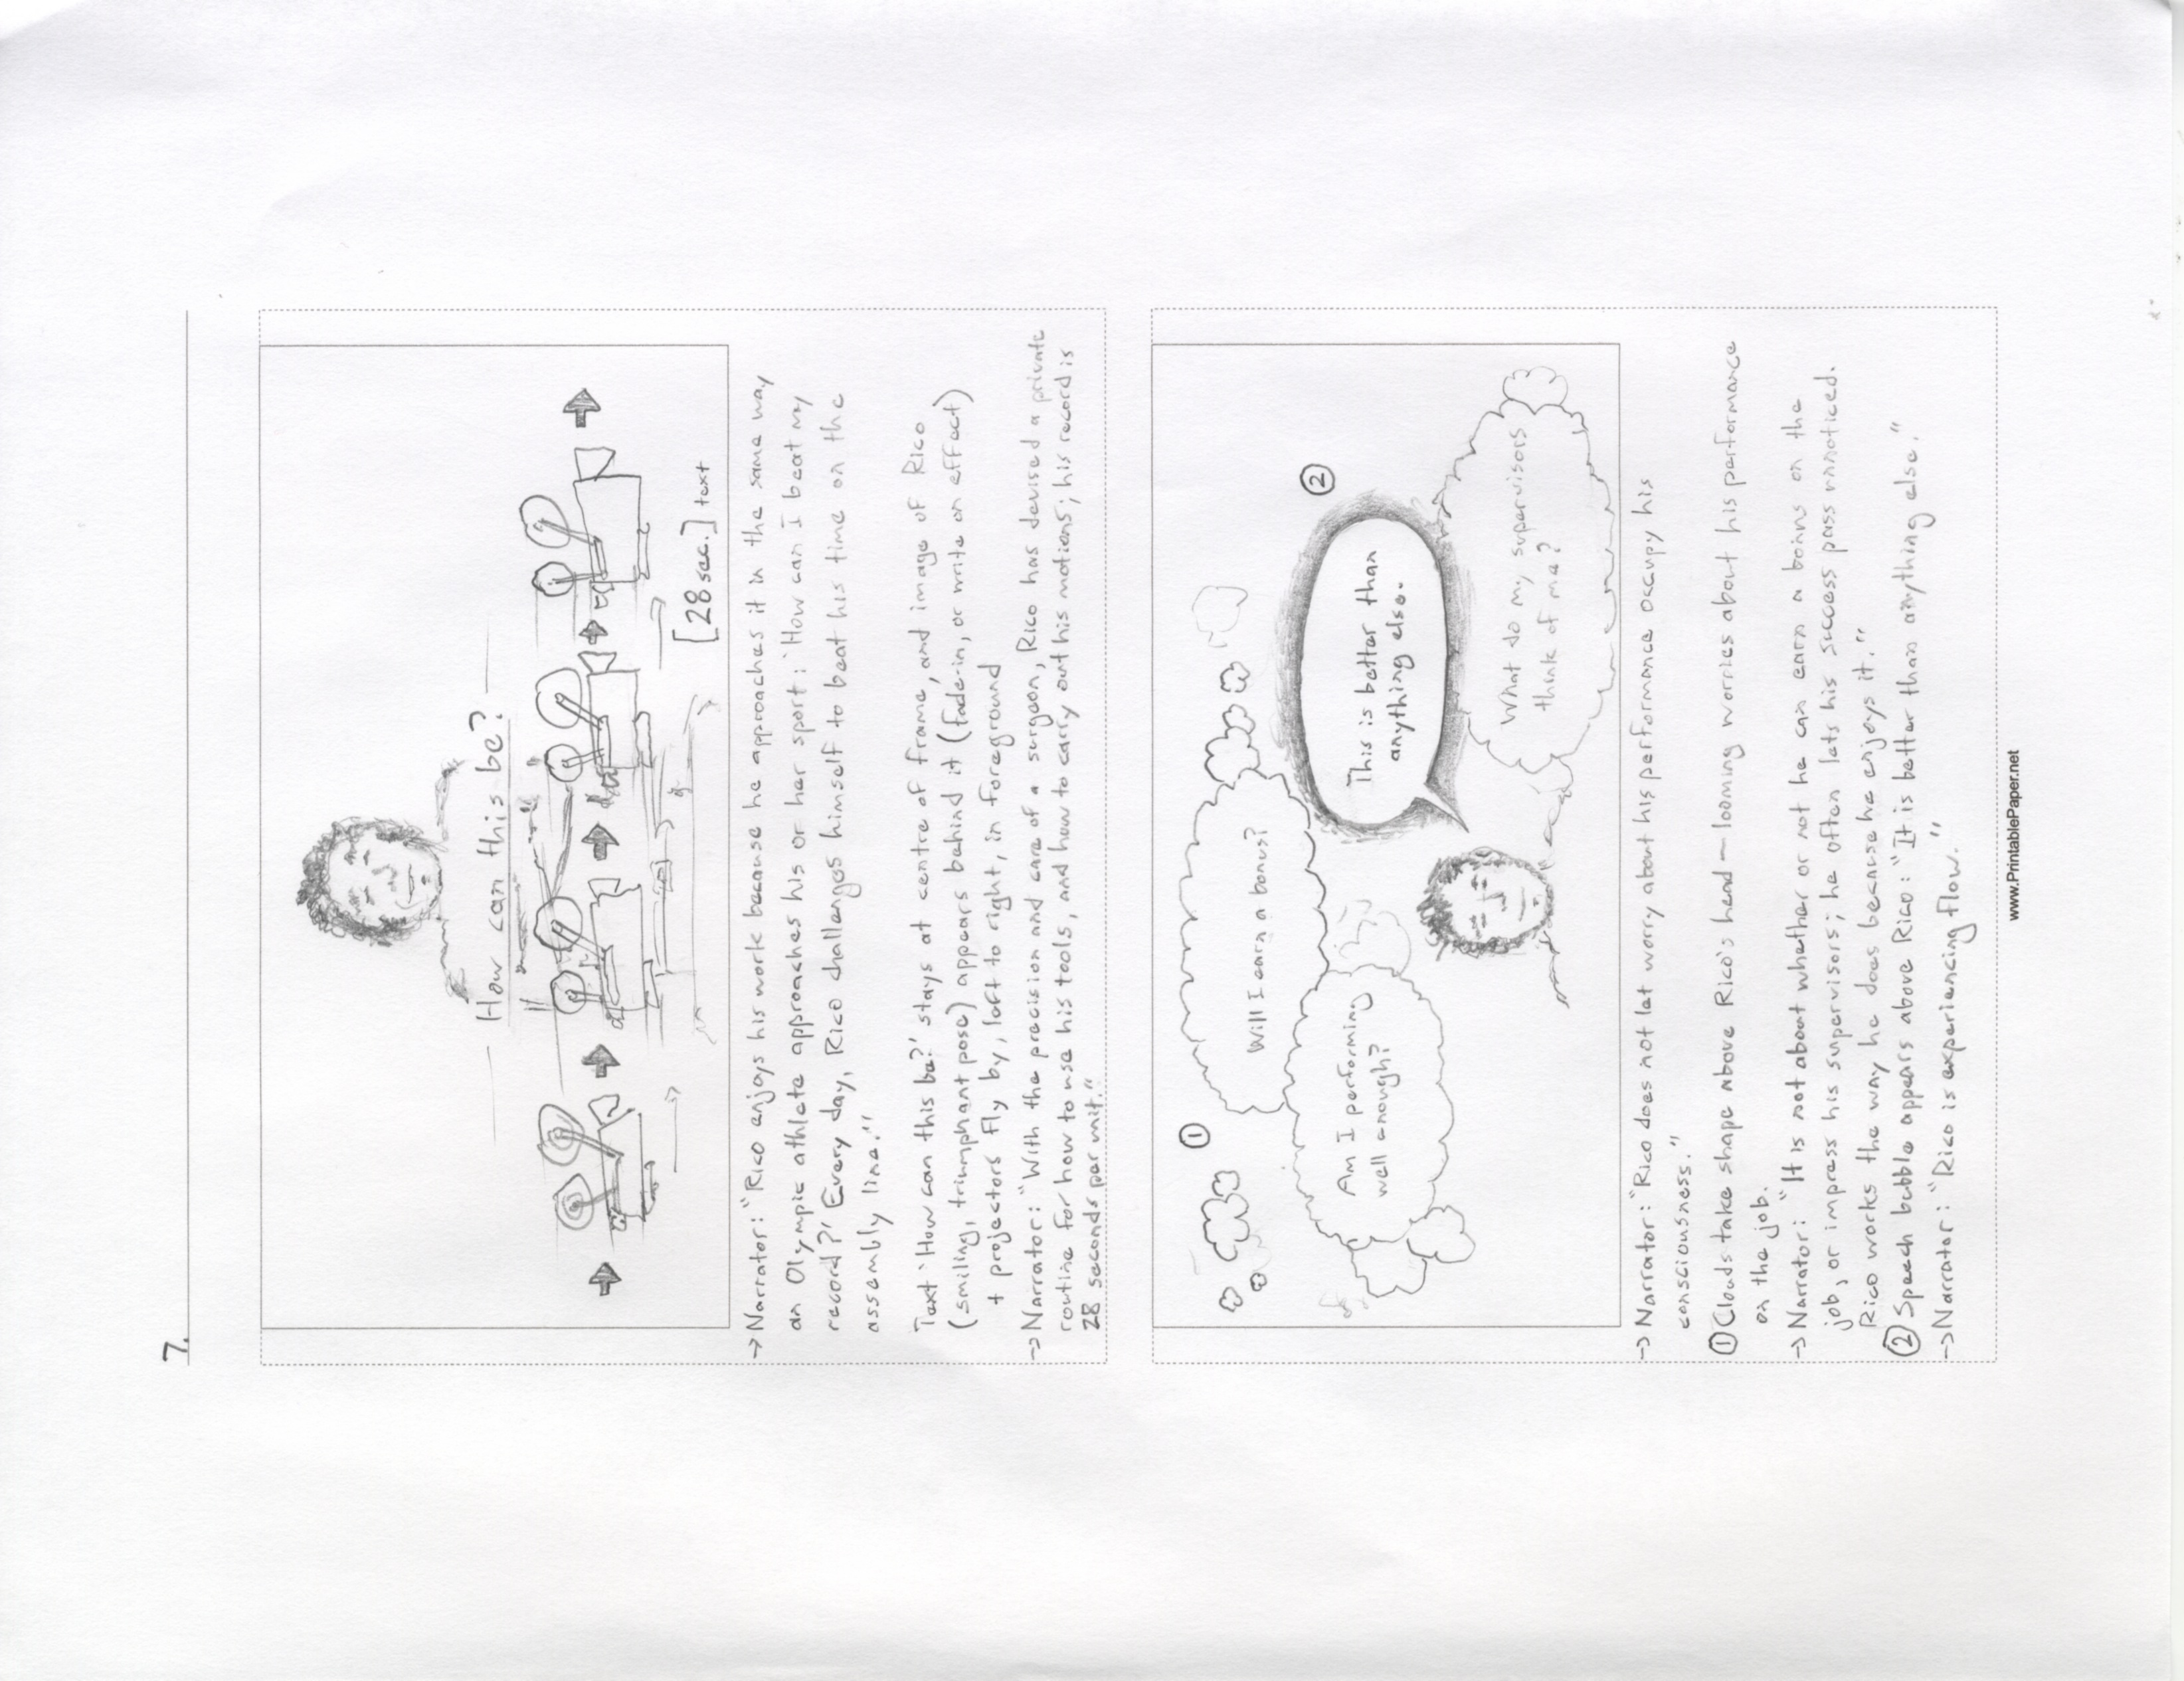 7.
How can this be?
[28 sec.] text
→ Narrator: "Rico enjoys his work because he approaches it in the same way
an Olympic athlete approaches his or her sport: 'How can I beat my
record?' Every day, Rico challenges himself to beat his time on the
assembly line."
Text 'How can this be?' stays at centre of frame, and image of Rico
(smiling, triumphant pose) appears behind it (fade-in, or write on effect)
+ projectors fly by, left to right, in foreground
→ Narrator: "With the precision and care of a surgeon, Rico has devised a private
routine for how to use his tools, and how to carry out his motions; his record is
28 seconds per unit."
①
Will I earn a bonus?
Am I performing
well enough?
②
This is better than
anything else.
What do my supervisors
think of me?
→ Narrator: "Rico does not let worry about his performance occupy his
consciousness."
① Clouds take shape above Rico's head — looming worries about his performance
on the job.
→ Narrator: "It is not about whether or not he can earn a bonus on the
job, or impress his supervisors; he often lets his success pass unnoticed.
Rico works the way he does because he enjoys it."
② Speech bubble appears above Rico: "It is better than anything else."
→ Narrator: "Rico is experiencing flow."
www.PrintablePaper.net